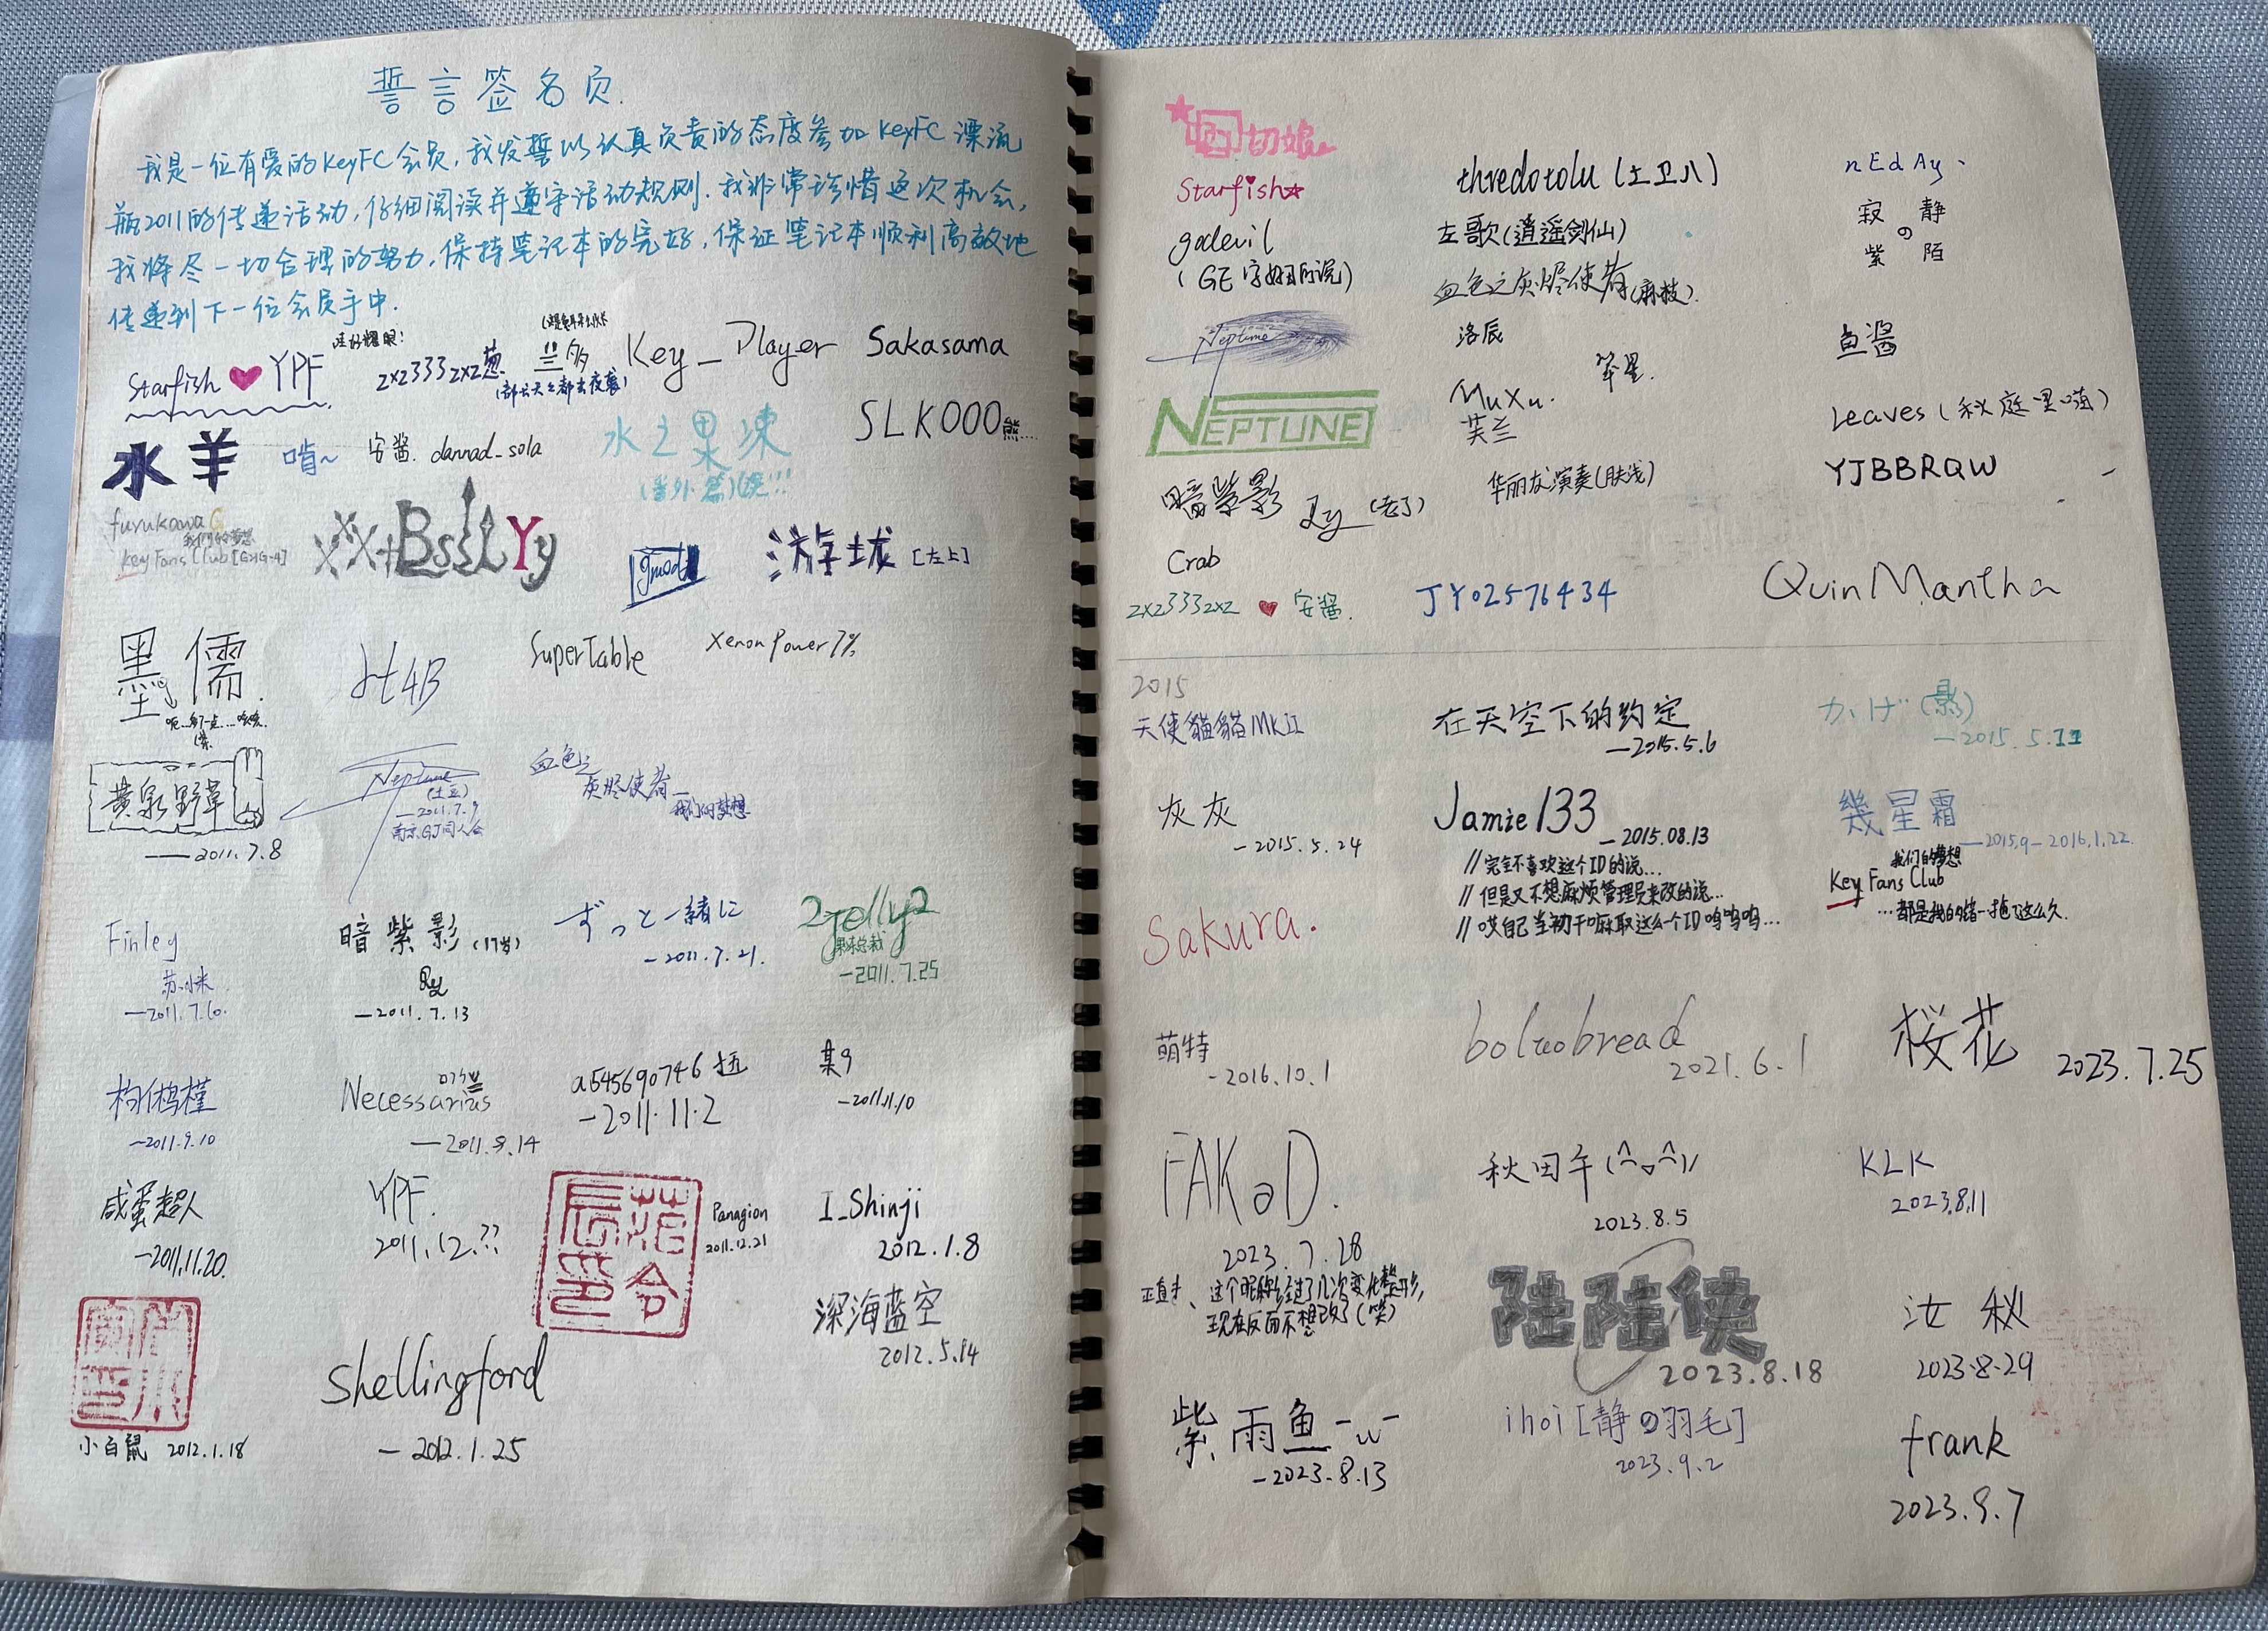 誓言签名页.
我是一位有爱的KeyFC会员,我发誓以认真负责的态度参加KeyFC漂流
瓶2011的传递活动,仔细阅读并遵守活动规则.我非常珍惜这次机会,
我将尽一切合理的努力,保持笔记本的完好,保证笔记本顺利高效地
传递到下一位会员手中.
Starfish ♥ YPF
zxz333zxz葱
Key_Player
Sakasama
水羊
啃~
安酱. dannad_sola
水之果冻
(番外篇)
SLK000熊...
furukawaG
我们的梦想
Key Fans Club [G>G-4]
XX+BsslYy
gmod
游城 [左上]
黑儒.
Ht4B
SuperTable
XenonPower7%
黄泉野草
——2011.7.8
Neptune
(土豆)
—2011.7.9
南京GJ同人会
血色之
灰烬使者—
我们的梦想
Finley
苏小米
—2011.7.10.
暗紫影(17岁)
—2011.7.13
ずっと一緒に
-2011.7.21.
2jelly2
果冻总裁
-2011.7.25
~2011.9.10
Necessarius
—2011.9.14
a545690746
-2011.11.2
某9
-2011.11.10
咸蛋超人
-2011.11.20.
YPF.
2011.12.??
Panagion
2011.12.21
I_Shinji
2012.1.8
深海蓝空
2012.5.14
小白鼠 2012.1.18
Shellingford
- 2012.1.25
Starfish☆
godevil
(GE字如同所说)
Neptune
NEPTUNE
暗紫影
(老了)
Crab
zxz333zxz ♥ 安酱.
thredotolu (土卫八)
左歌(逍遥剑仙)
血色之灰烬使者(麻枝).
洛辰
笨星.
MuXu.
芙兰
华丽友演奏(肤浅)
JY02576434
nEdAy
寂静
の
紫陌
鱼酱
Leaves (秋庭里喃)
YJBBRQW
QuinMantha
2015
天使貓貓MkII
在天空下的约定
—2015.5.6
かげ(影)
—2015.5.11
灰灰
-2015.5.24
Jamie133
—2015.08.13
// 完全不喜欢这个ID的说...
// 但是又不想麻烦管理员来改的说...
// 哎自己当初干嘛取这么个ID呜呜呜...
幾星霜
—2015.9-2016.1.22
我们的梦想
Key Fans Club
...都是我的错一拖了这么久.
Sakura.
萌特
-2016.10.1
boluobread
2021.6.1
桜花
2023.7.25
FAKaD.
2023.7.28
这个昵称经过了几次变化整形,
现在反而不想改了(笑)
秋田午(^o^)/
2023.8.5
KLK
2023.8.11
陆陆侠
2023.8.18
汝秋
2023.8.29
紫雨鱼-w-
-2023.8.13
ihoi [静の羽毛]
2023.9.2
frank
2023.9.7